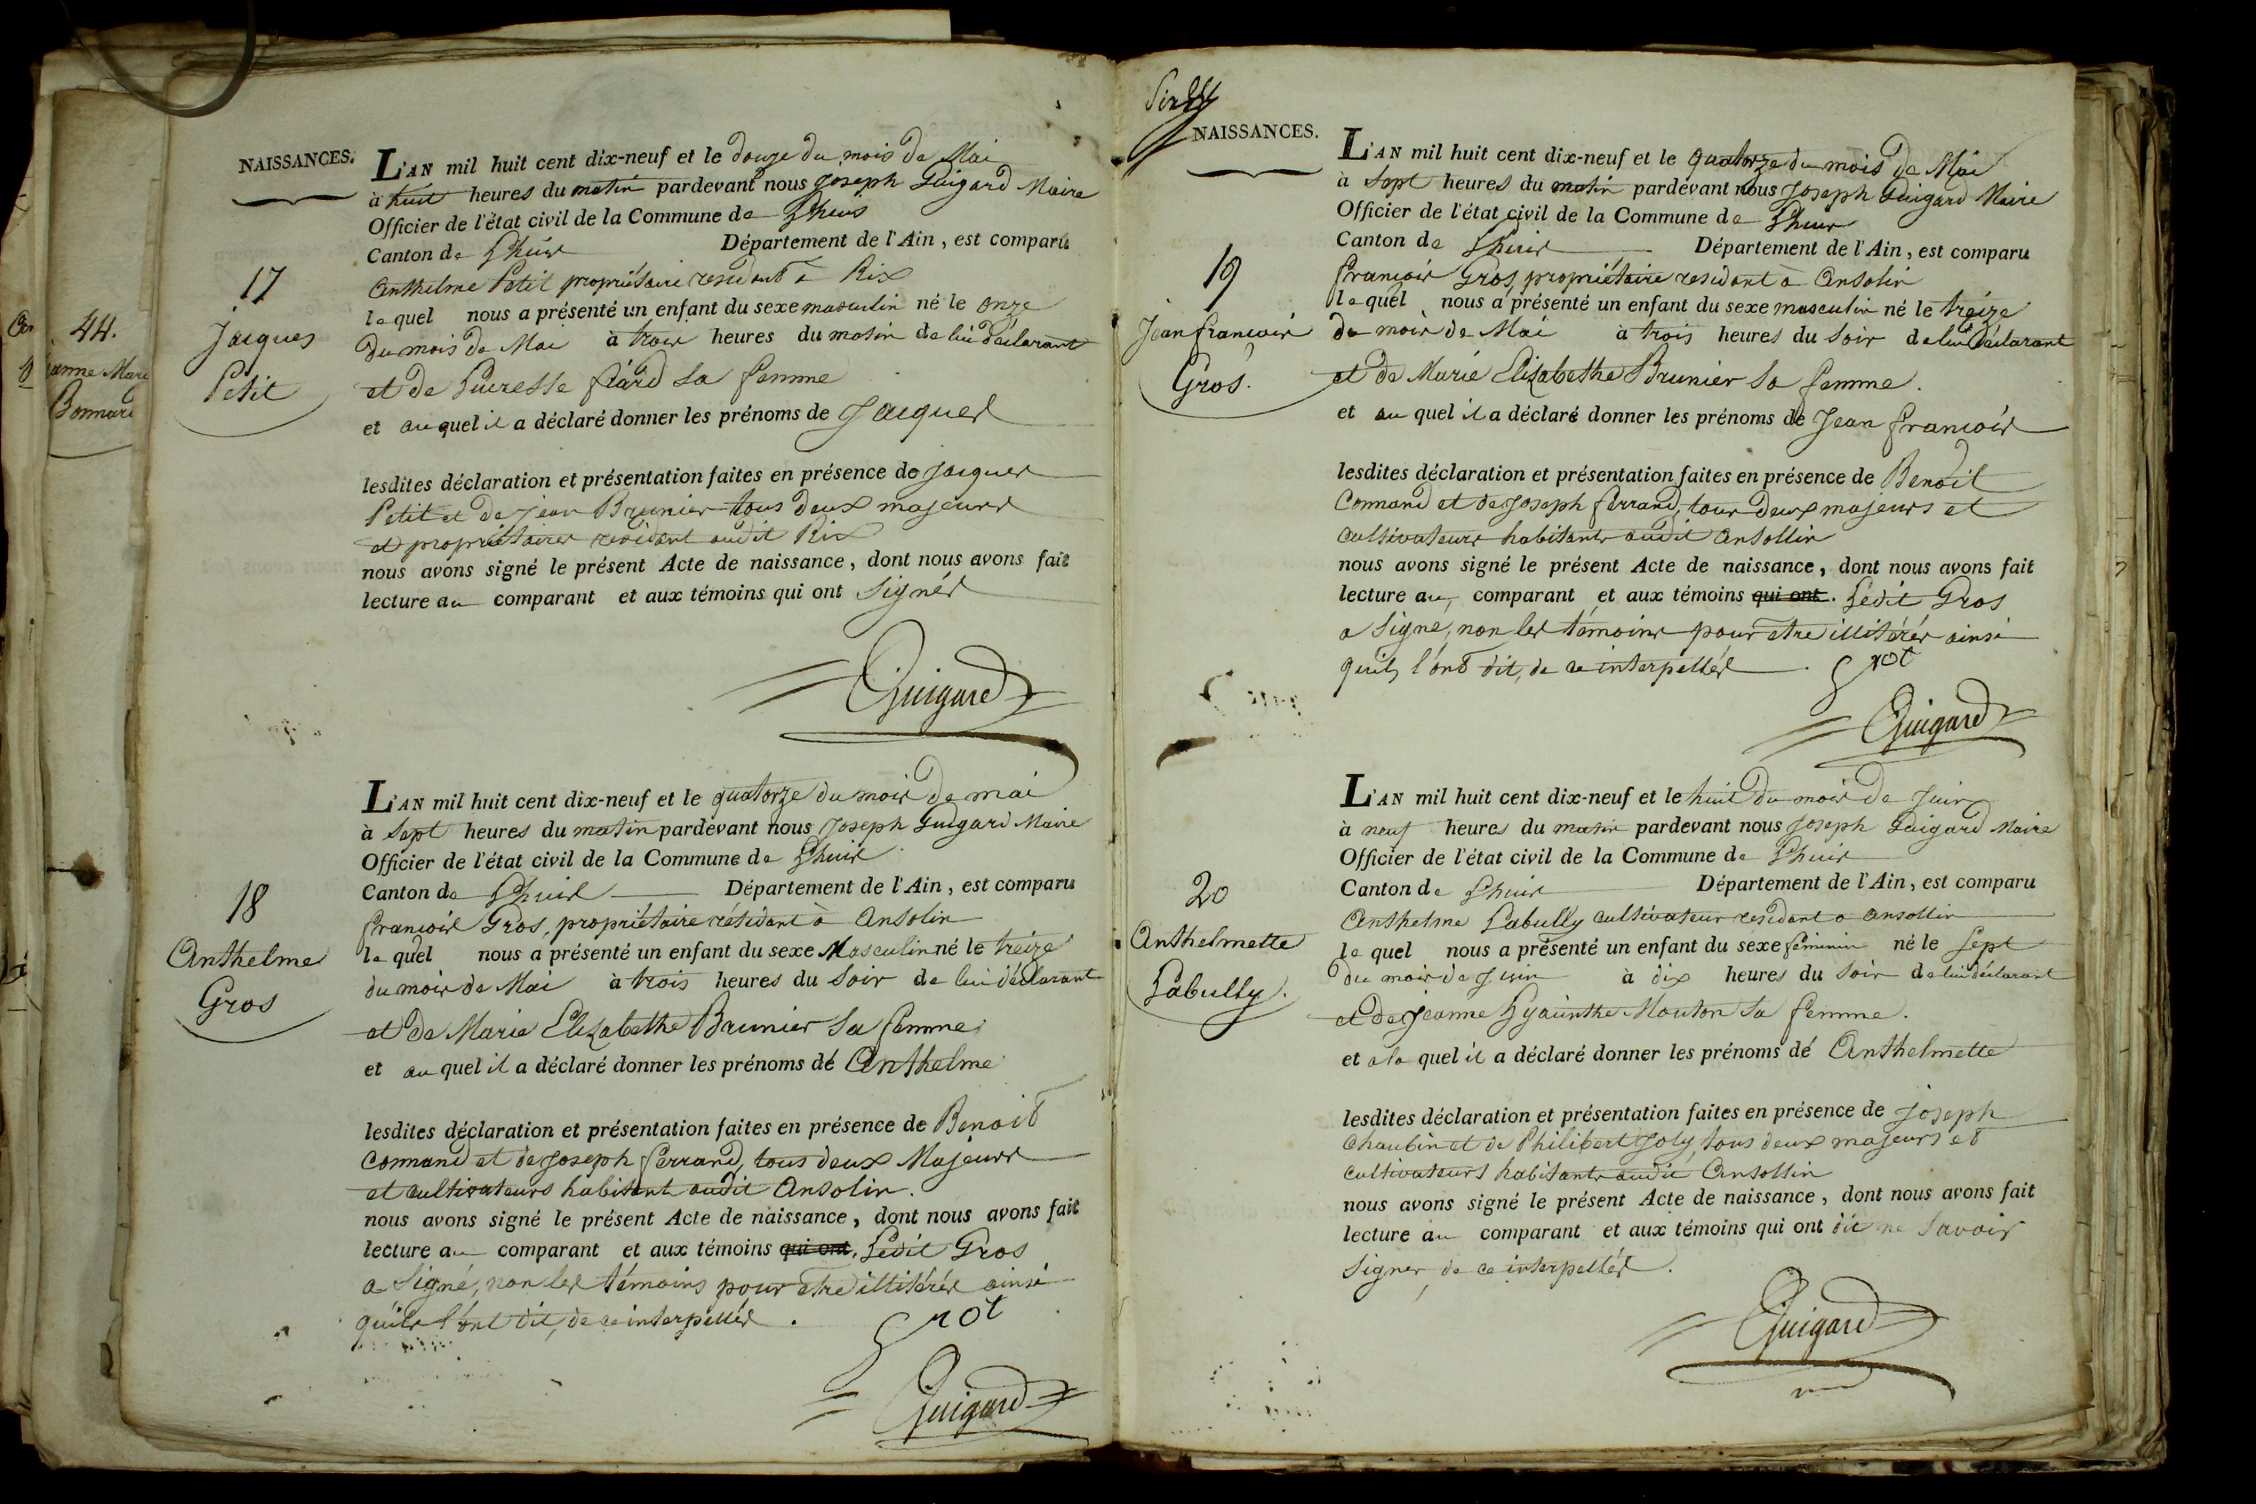 44.
anne Marie
Bonnard
NAISSANCES.
17
Jacques
Petit
L'AN mil huit cent dix-neuf et le douze du mois de Mai
à huit heures du matin pardevant nous Joseph Guigard Maire
Officier de l'état civil de la Commune de Lhuis
Canton de Lhuis Département de l'Ain, est comparu
Anthelme Petit propriétaire résidant à Rix
lequel nous a présenté un enfant du sexe masculin né le onze
du mois de Mai à trois heures du matin de lui déclarant
et de Lucresse fiard sa femme
et auquel il a déclaré donner les prénoms de Jacques
lesdites déclaration et présentation faites en présence de Jacques
Petit et de Jean Brunier tous deux majeurs
et propriétaires résidant audit Rix
nous avons signé le présent Acte de naissance, dont nous avons fait
lecture au comparant et aux témoins qui ont Signés
Guigard
18
Anthelme
Gros
L'AN mil huit cent dix-neuf et le quatorze du mois de mai
à Sept heures du matin pardevant nous Joseph Guigard Maire
Officier de l'état civil de la Commune de Lhuis
Canton de Lhuis Département de l'Ain, est comparu
françois Gros, propriétaire résidant à Ansolin
lequel nous a présenté un enfant du sexe Masculin né le treize
du mois de Mai à trois heures du Soir de lui déclarant
et de Marie Elizabethe Brunier sa femme
et au quel il a déclaré donner les prénoms dé Anthelme
lesdites déclaration et présentation faites en présence de Benoit
Connand et de Joseph ferrand, tous deux Majeurs
et cultivateurs habitant audit Ansolin.
nous avons signé le présent Acte de naissance, dont nous avons fait
lecture au comparant et aux témoins qui ont. Ledit Gros
a Signé, non les témoins pour etre illitérés ainsi
qu'ils l'ont dit, de ce interpellés.
Grot
Guigard
NAISSANCES.
19
Jean françois
Gros.
L'AN mil huit cent dix-neuf et le quatorze du mois de Mai
à Sept heures du matin pardevant nous Joseph Guigard Maire
Officier de l'état civil de la Commune de Lhuis
Canton de Lhuis Département de l'Ain, est comparu
françois Gros, propriétaire residant à Ansolin
lequel nous a présenté un enfant du sexe masculin né le treize
du mois de Mai à trois heures du Soir de lui déclarant
et de Marie Elizabethe Brunier Sa femme.
et au quel il a déclaré donner les prénoms de Jean françois
lesdites déclaration et présentation faites en présence de Benoit
Connand et de Joseph ferrand, tous deux majeurs et
cultivateurs habitants audit Ansollin
nous avons signé le présent Acte de naissance, dont nous avons fait
lecture au comparant et aux témoins qui ont. Ledit Gros
a Signé, non les témoins pour etre illitérés ainsi
qu'ils l'ont dit, de ce interpellés.
Grot
Guigard
20
Anthelmette
Labully.
L'AN mil huit cent dix-neuf et le huit du mois de Juin
à neuf heures du matin pardevant nous Joseph Guigard Maire
Officier de l'état civil de la Commune de Lhuis
Canton de Lhuis Département de l'Ain, est comparu
Anthelme Labully cultivateur residant a Ansollin
lequel nous a présenté un enfant du séxe féminin né le Sept
du mois de Juin à dix heures du Soir de lui déclarant
et de Jeanne Hyacinthe Mouton Sa femme.
et a la quel il a déclaré donner les prénoms dé Anthelmette
lesdites déclaration et présentation faites en présence de Joseph
Chaubin et de Philibert Joly, tous deux majeurs et
cultivateurs habitants audit Ansollin
nous avons signé le présent Acte de naissance, dont nous avons fait
lecture au comparant et aux témoins qui ont dit ne Savoir
Signer, de ce interpellés.
Guigard